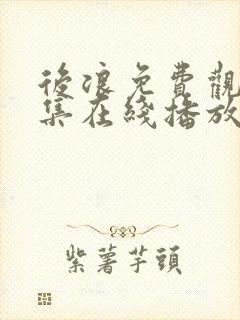 後浪免費觀
集在綫播放
紫薯芋頭